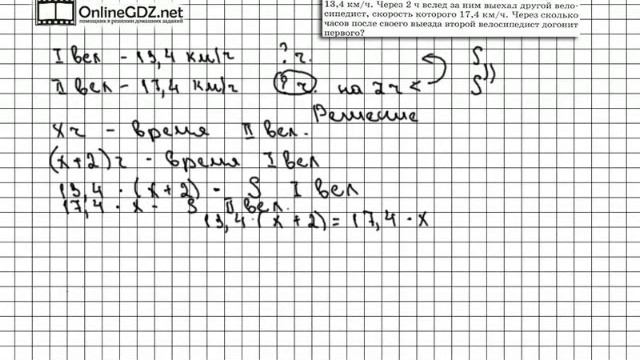 OnlineGDZ.net
помощник в решении домашних заданий
13,4 км/ч. Через 2 ч вслед за ним выехал другой вело-
сипедист, скорость которого 17,4 км/ч. Через сколько
часов после своего выезда второй велосипедист догонит
первого?
I вел - 13,4 км/ч ? ч. S
II вел - 17,4 км/ч ? ч. на 2 ч < S
Решение
x ч - время II вел.
(x+2) ч - время I вел
13,4 · (x+2) - S I вел
17,4 · x - S II вел.
13,4 · (x+2) = 17,4 · x